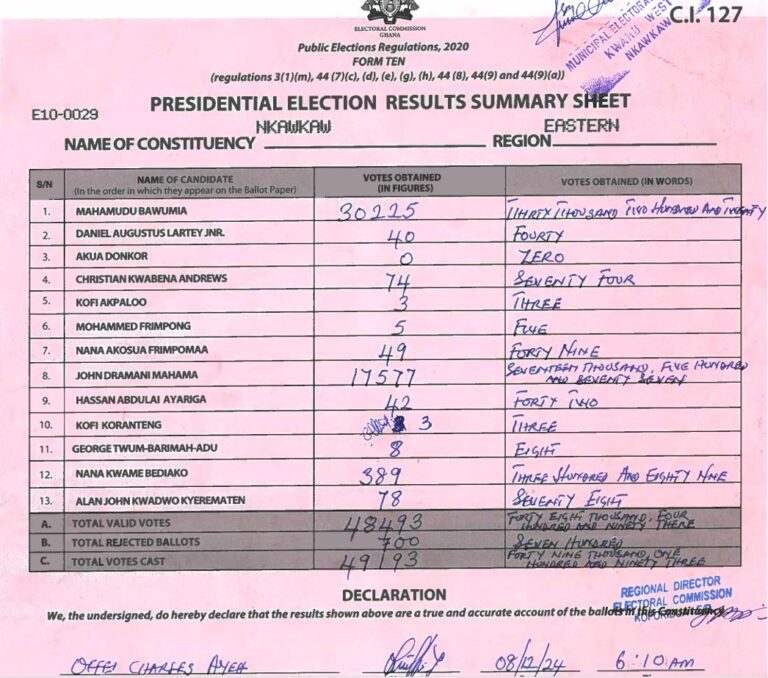 ELECTORAL COMMISSION
GHANA
C.I. 127
MUNICIPAL ELECTORAL
KWAHU WEST
NKAWKAW
Public Elections Regulations, 2020
FORM TEN
(regulations 3(1)(m), 44 (7)(c), (d), (e), (g), (h), 44 (8), 44(9) and 44(9)(a))
PRESIDENTIAL ELECTION RESULTS SUMMARY SHEET
E10-0029
NAME OF CONSTITUENCY NKAWKAW REGION EASTERN
S/N NAME OF CANDIDATE (In the order in which they appear on the Ballot Paper) VOTES OBTAINED (IN FIGURES) VOTES OBTAINED (IN WORDS)
1. MAHAMUDU BAWUMIA 30225 THIRTY THOUSAND TWO HUNDRED AND TWENTY
2. DANIEL AUGUSTUS LARTEY JNR. 40 FOURTY
3. AKUA DONKOR 0 ZERO
4. CHRISTIAN KWABENA ANDREWS 74 SEVENTY FOUR
5. KOFI AKPALOO 3 THREE
6. MOHAMMED FRIMPONG 5 FIVE
7. NANA AKOSUA FRIMPOMAA 49 FORTY NINE
8. JOHN DRAMANI MAHAMA 17577 SEVENTEEN THOUSAND, FIVE HUNDRED AND SEVENTY SEVEN
9. HASSAN ABDULAI AYARIGA 42 FORTY TWO
10. KOFI KORANTENG 3 THREE
11. GEORGE TWUM-BARIMAH-ADU 8 EIGHT
12. NANA KWAME BEDIAKO 389 THREE HUNDRED AND EIGHTY NINE
13. ALAN JOHN KWADWO KYEREMATEN 78 SEVENTY EIGHT
A. TOTAL VALID VOTES 48493 FORTY EIGHT THOUSAND, FOUR HUNDRED AND NINETY THERE
B. TOTAL REJECTED BALLOTS 700 SEVEN HUNDRED
C. TOTAL VOTES CAST 49193 FORTY NINE THOUSAND, ONE HUNDRED AND NINETY THREE
DECLARATION
REGIONAL DIRECTOR
ELECTORAL COMMISSION
We, the undersigned, do hereby declare that the results shown above are a true and accurate account of the ballots in this Constituency
OFFEI CHARLES AYEH 08/12/24 6:10 AM